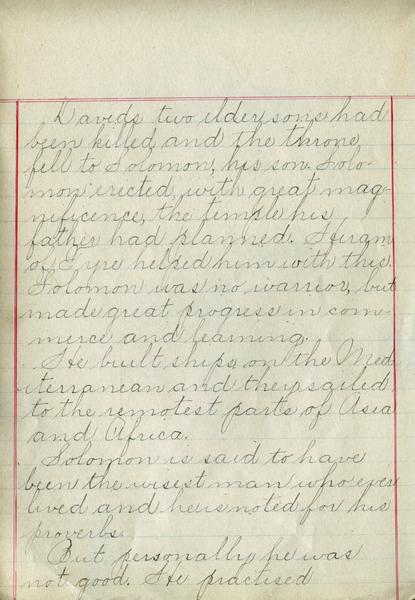 Davids two elder sons had
been killed and the throne
fell to Solomon, his son. Solo-
mon erected, with great mag-
nificence, the temple his
father had planned. Hiram
of Tyre helped him with this.
Solomon was no warrior, but
made great progress in com-
merce and learning.
He built ships on the Med-
iterranean and they sailed
to the remotest parts of Asia
and Africa.
Solomon is said to have
been the wisest man who ever
lived and he is noted for his
proverbs.
But personally he was
not good. He practised